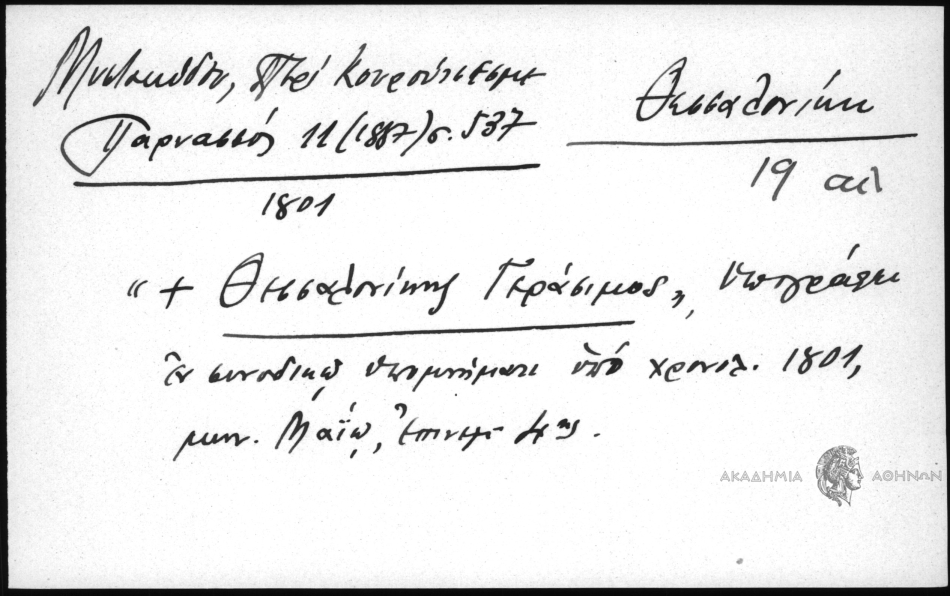 Μυστακίδου, Περί Κουρούτσεσμε
Παρνασσός 11 (1887) σ. 537
Θεσσαλονίκη
19 αι
1801
"+ Θεσσαλονίκης Γεράσιμος", υπογράφει
ἐν συνοδικῷ ὑπομνήματι ὑπό χρονολ. 1801,
μην. Μαΐῳ, ἐπινεμ 4ης.
ΑΚΑΔΗΜΙΑ ΑΘΗΝΩΝ